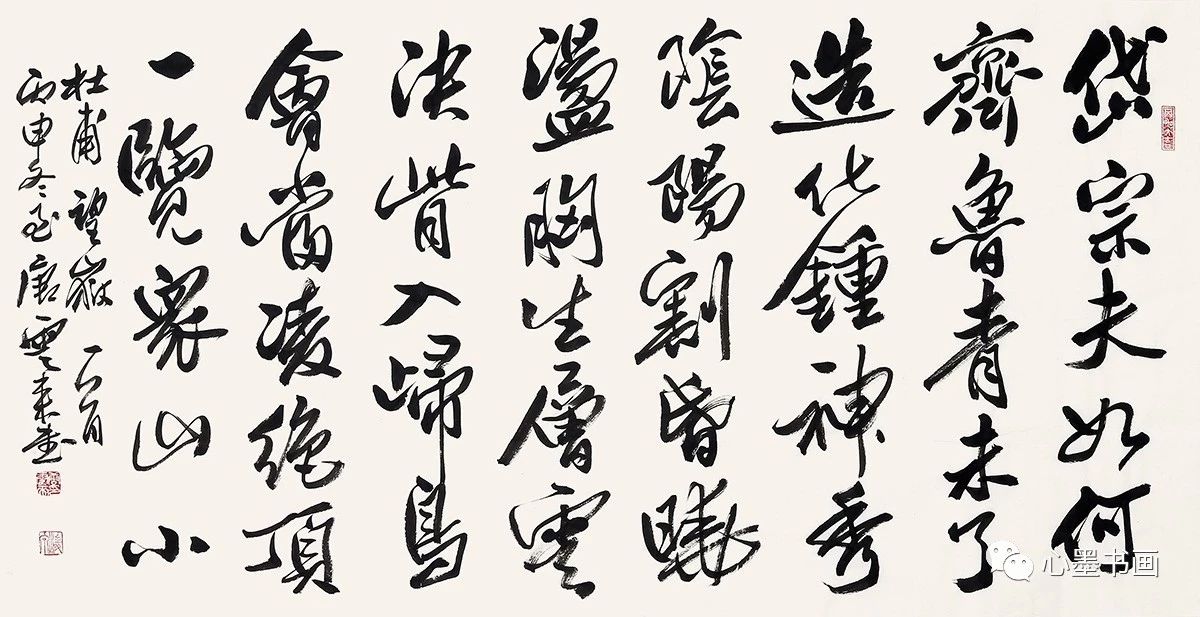 岱宗夫如何
齊魯青未了
造化鍾神秀
陰陽割昏曉
盪胸生層雲
決眥入歸鳥
會當凌絶頂
一覽衆山小
杜甫望嶽一首
丙申冬至唐雲来書
心墨书画